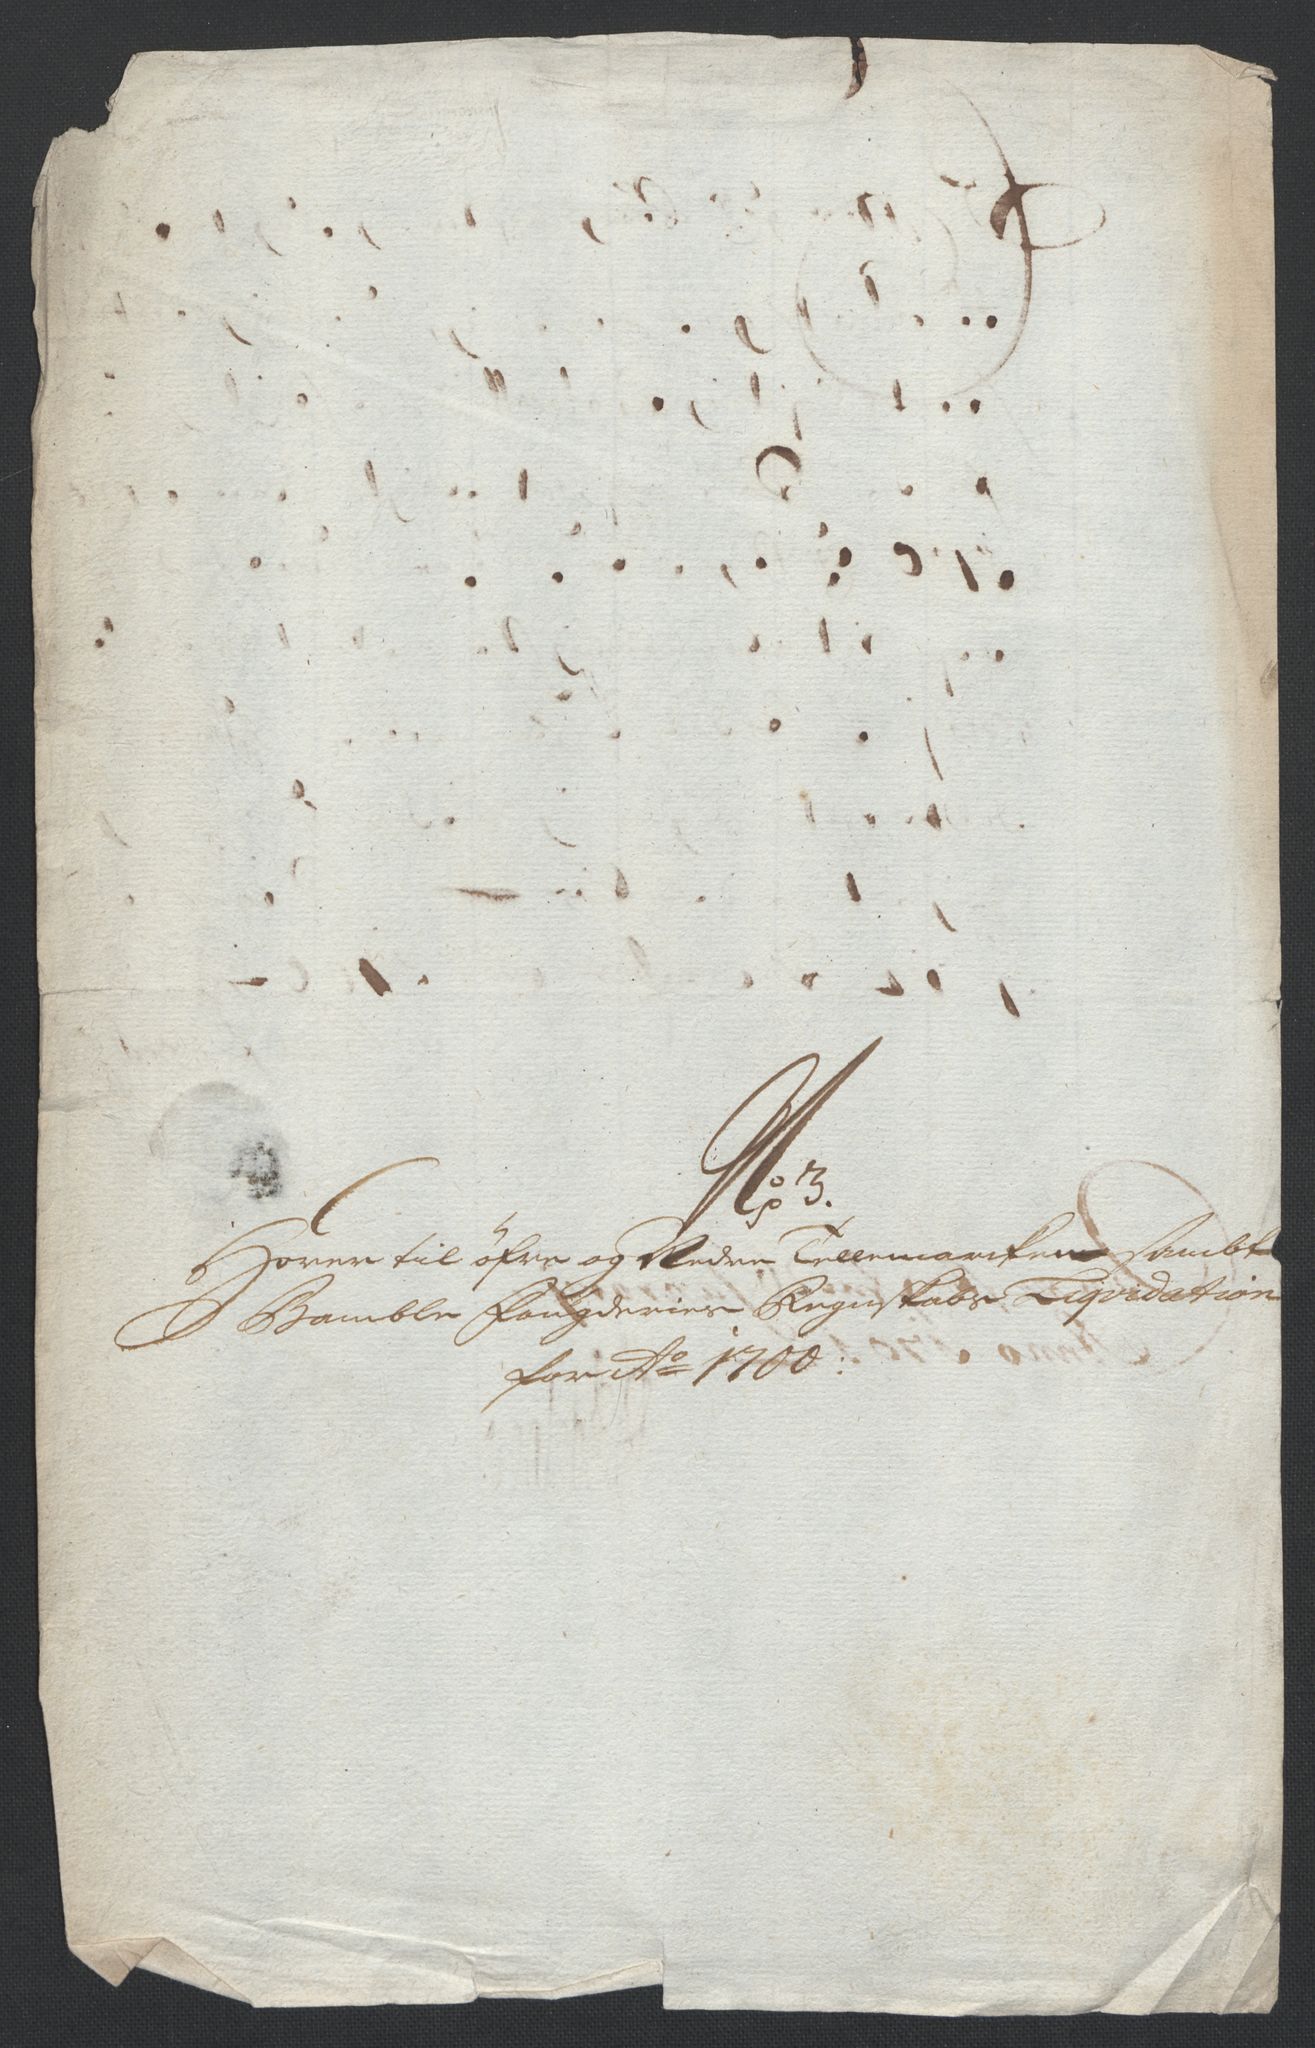 No: 3.
Hörer til öfre og Nedre Tellemarcken sambt
Bamble fougderies Regnskabs Liqvidation
for Ao 1700: